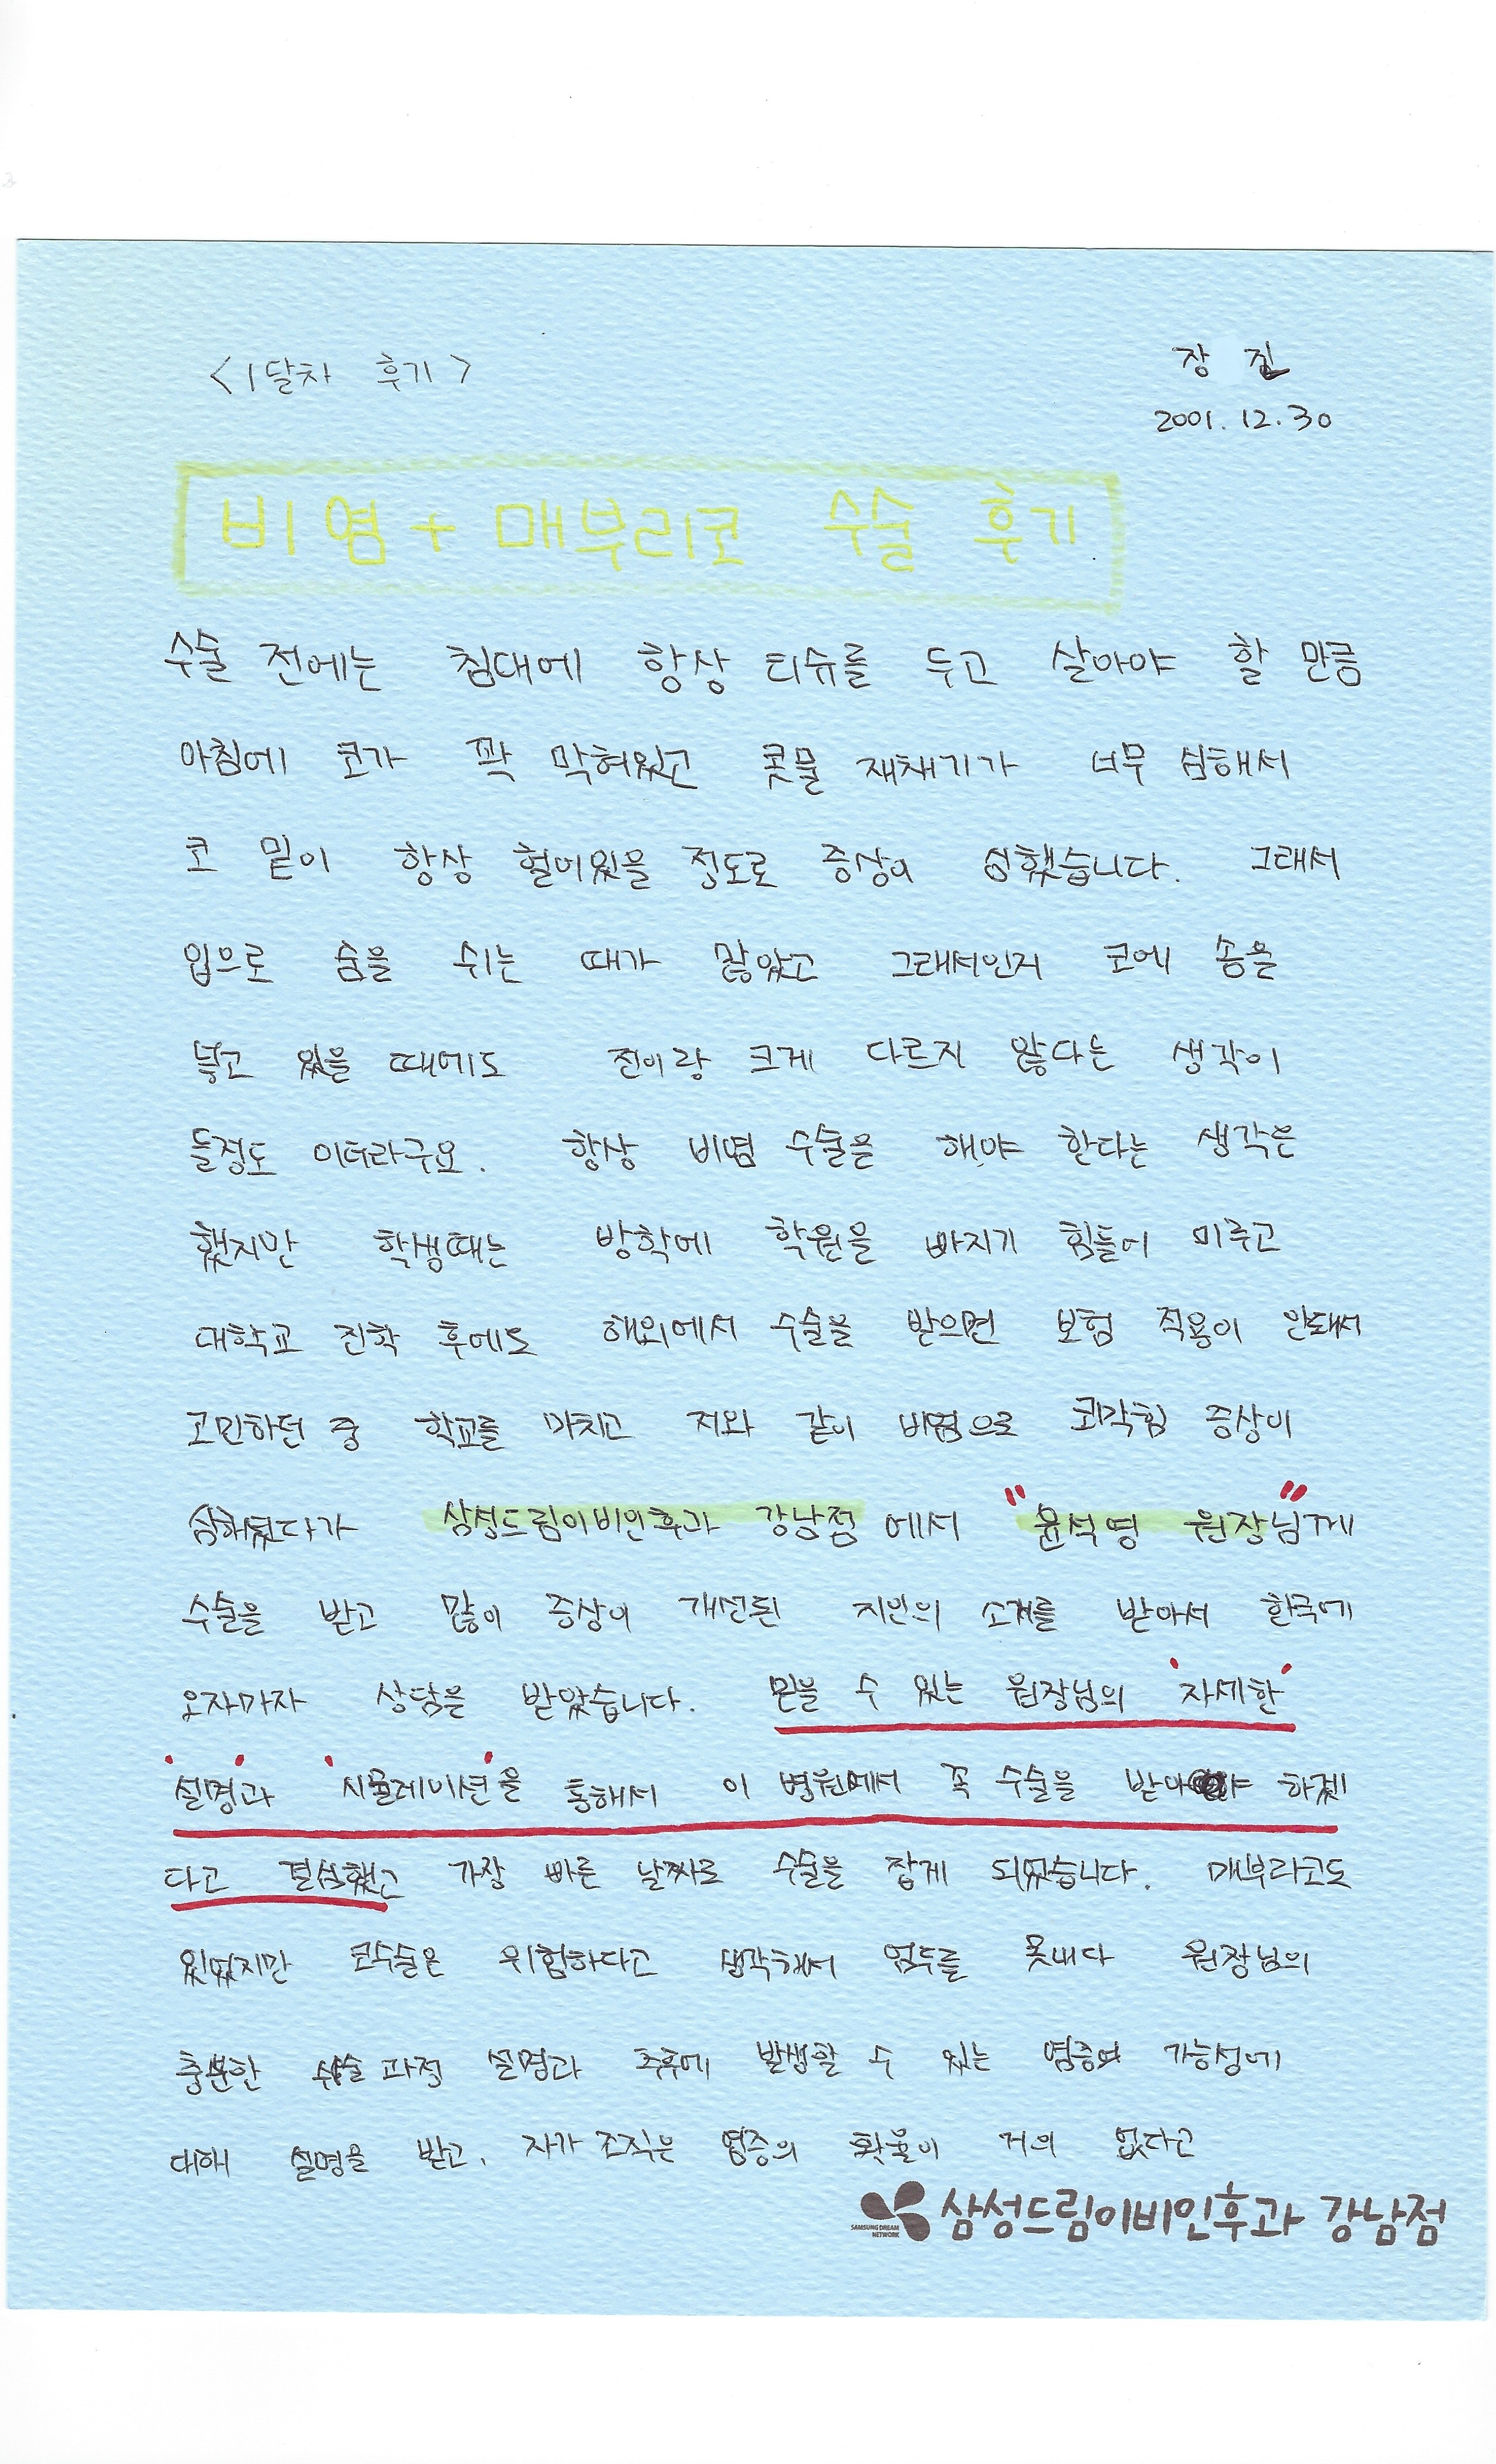 <1달차 후기>
장 진
2001.12.30
비염 + 매부리코 수술 후기
수술 전에는 침대에 항상 티슈를 두고 살아야 할 만큼
아침에 코가 꽉 막혀있고 콧물 재채기가 너무 심해서
코 밑이 항상 헐어있을 정도로 증상이 심했습니다. 그래서
입으로 숨을 쉬는 때가 많았고 그래서인지 코에 솜을
넣고 있을 때에도 전이랑 크게 다르지 않다는 생각이
들정도 이더라구요. 항상 비염 수술을 해야 한다는 생각은
했지만 학생때는 방학에 학원을 빠지기 힘들어 미루고
대학교 진학 후에도 해외에서 수술을 받으면 보험 적용이 안돼서
고민하던 중 학교를 마치고 저와 같이 비염으로 코막힘 증상이
심해졌다가 삼성드림이비인후과 강남점 에서 "윤석영 원장님"께
수술을 받고 많이 증상이 개선된 지인의 소개를 받아서 한국에
오자마자 상담을 받았습니다. 믿을 수 있는 원장님의 '자세한'
'설명'과 '시뮬레이션'을 통해서 이 병원에서 꼭 수술을 받아야 하겠
다고 결심했고 가장 빠른 날짜로 수술을 잡게 되었습니다. 매부리코도
있었지만 코수술은 위험하다고 생각해서 엄두를 못내다 원장님의
충분한 수술과정 설명과 추후에 발생할 수 있는 염증의 가능성에
대해 설명을 받고, 자가 조직은 염증의 확률이 거의 없다고
SAMSUNG DREAM NETWORK 삼성드림이비인후과 강남점